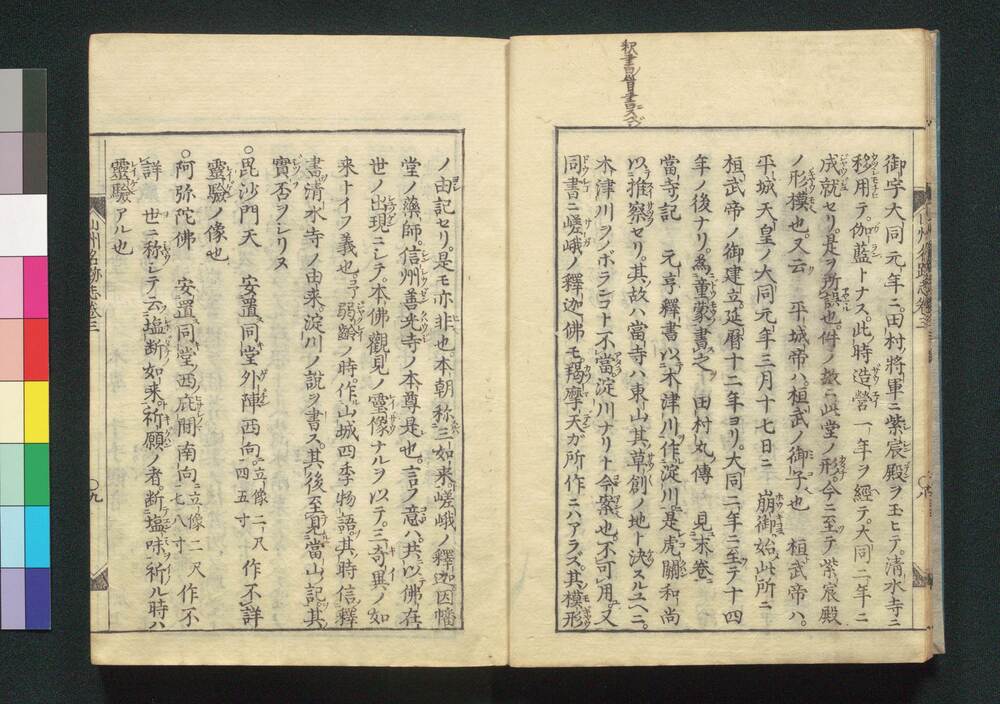 釈書旨書スヘシ
御宇大同元年ニ田村將軍ニ紫宸殿ヲ玉ヒテ清水寺ニ
移用テ伽藍トナス此時造營一年ヲ經テ大同二年ニ
成就セリ是ヲ所謂也件ノ故ニ此堂ノ形今ニ至テ紫宸殿
ノ形樸也又云 平城帝ハ桓武ノ御子也 桓武帝ハ
平城天皇ノ大同元年三月十七日ニ 崩御始此所ニ
桓武帝ノ御建立延暦十二年ヨリ大同二年ニ至テ十四
年ノ後ナリ為童蒙書之 田村丸傳 見末卷
當寺ノ記 元亨釋書以木津川作淀川是虎關和尚
以推察セリ其故ハ當寺ハ東山其草創ノ地ト決スルユヘニ
木津川ヲノボランコト不當淀川ナリト今案也不可用又
同書ニ嵯峨ノ釋迦佛モ羯摩天ガ所作ニハアラズ其模形
ノ由記セリ是モ亦非也本朝称三如来嵯峨ノ釋迦因幡
堂ノ藥師信州善光寺ノ本尊是也言フ意ハ共ニ以佛在
世ノ出現ニシテ本佛觀見ノ靈像ナルヲ以テ三奇異ノ如
来トイフ義也予弱齢ノ時作山城四季物語其時信釋
書清水寺ノ由来淀川ノ説ヲ書ス其後至見當山記其
實否ヲシリヌ
○毘沙門天 安置同堂外陣西向立像二尺四五寸作不詳
靈驗ノ像也
○阿弥陀佛 安置同堂西庇間南向立像二尺七八寸作不
詳 世ニ称シテ云塩断如来祈願ノ者断塩味祈ル時ハ
靈驗アル也
山州名跡志卷三
○九